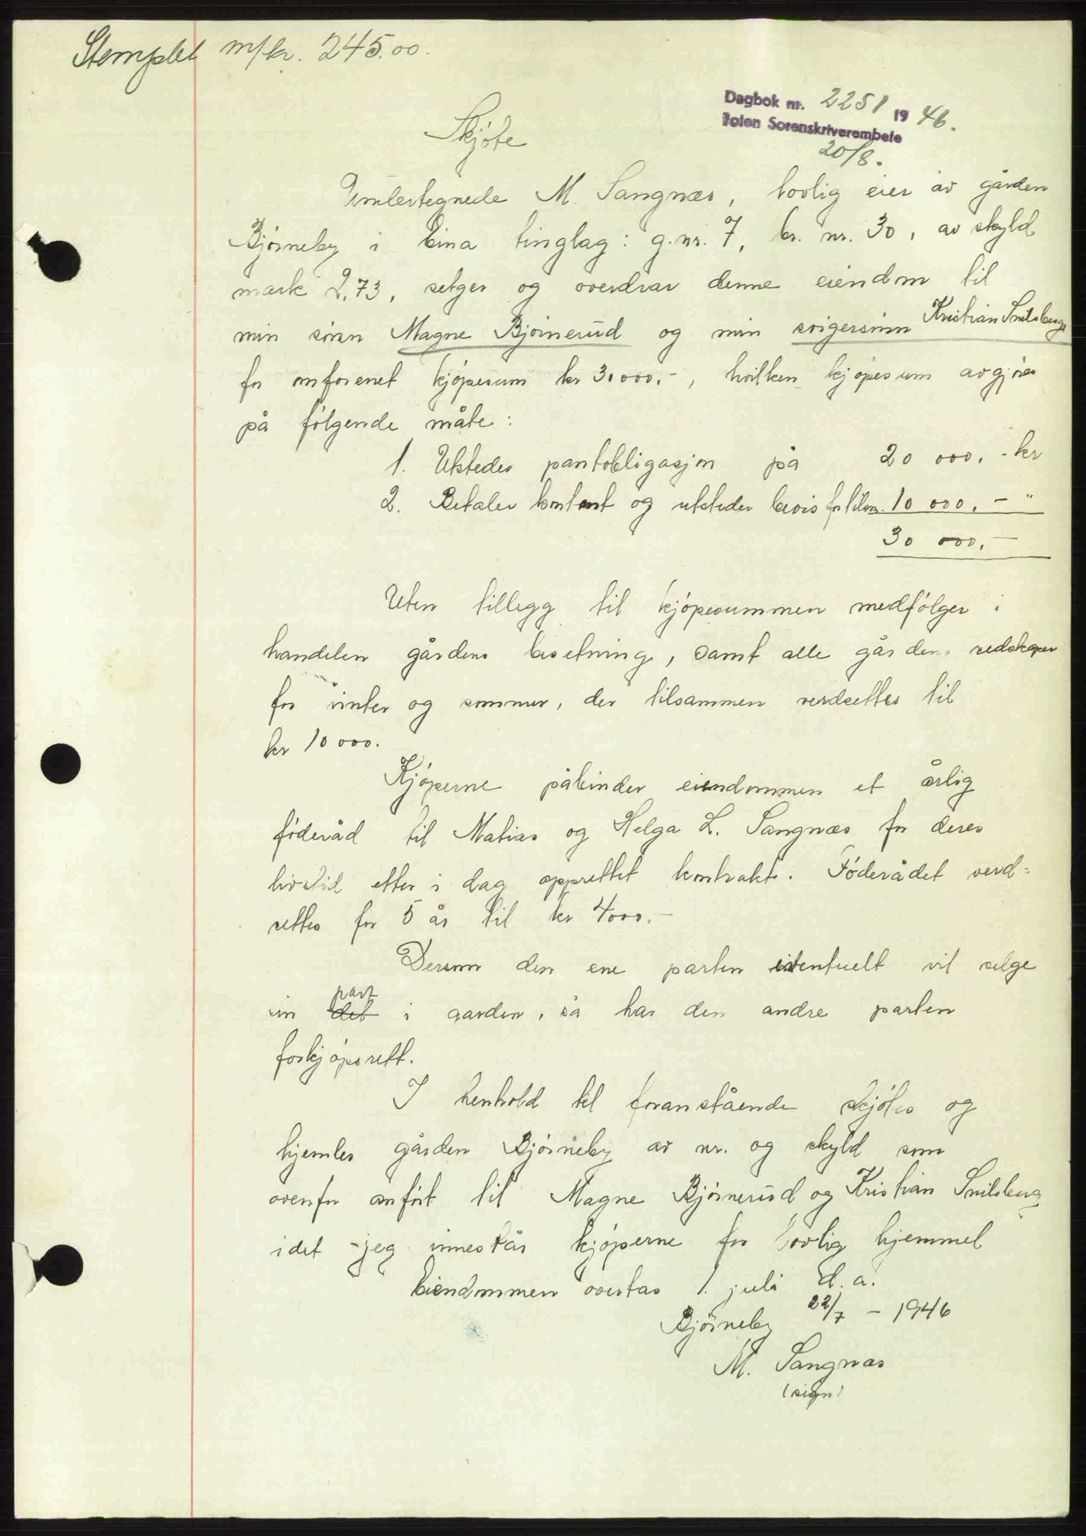 Stemplet m/kr. 245.00.
Dagbok nr. 2251 1946.
Toten Sorenskriverembete
20/8.
Skjøte
Undertegnede M. Sangnæs, lovlig eier av gården
Bjørneby i Eina tinglag: g.nr. 7, br. nr. 30, av skyld
mark 2,73, selger og overdrar denne eiendom til
min sønn Magne Bjørnerud og min svigersønn Kristian Snilsberg
for omforenet kjøpesum kr 30000.-, hvilken kjøpesum avgjøres
på følgende måte:
1. Utsteder pantobligasjon på 20 000.- kr
2. Betaler kontant og utsteder bevis for tilsv. 10 000.- "
30 000.-
Uten tillegg til kjøpesummen medfølger i
handelen gårdens besetning, samt alle gårdens redskaper
for vinter og sommer, der tilsammen verdsettes til
kr 10000.
Kjøperne påbinder eiendommen et årlig
føderåd til Matias og Helga L. Sangnæs for deres
livstid etter i dag opprettet kontrakt. Føderådet verd-
settes for 5 år til kr 4000.-
Dersom den ene parten eventuelt vil selge
sin det part i garden, så har den andre parten
forkjøpsrett.
I henhold til foranstående skjøtes og
hjemles gården Bjørneby av nr. og skyld som
ovenfor anført til Magne Bjørnerud og Kristian Snilsberg
idet jeg innestår kjøperne for lovlig hjemmel
Eiendommen overtas 1. juli d.a.
Bjørneby 22/7 - 1946
M. Sangnæs
(sign)